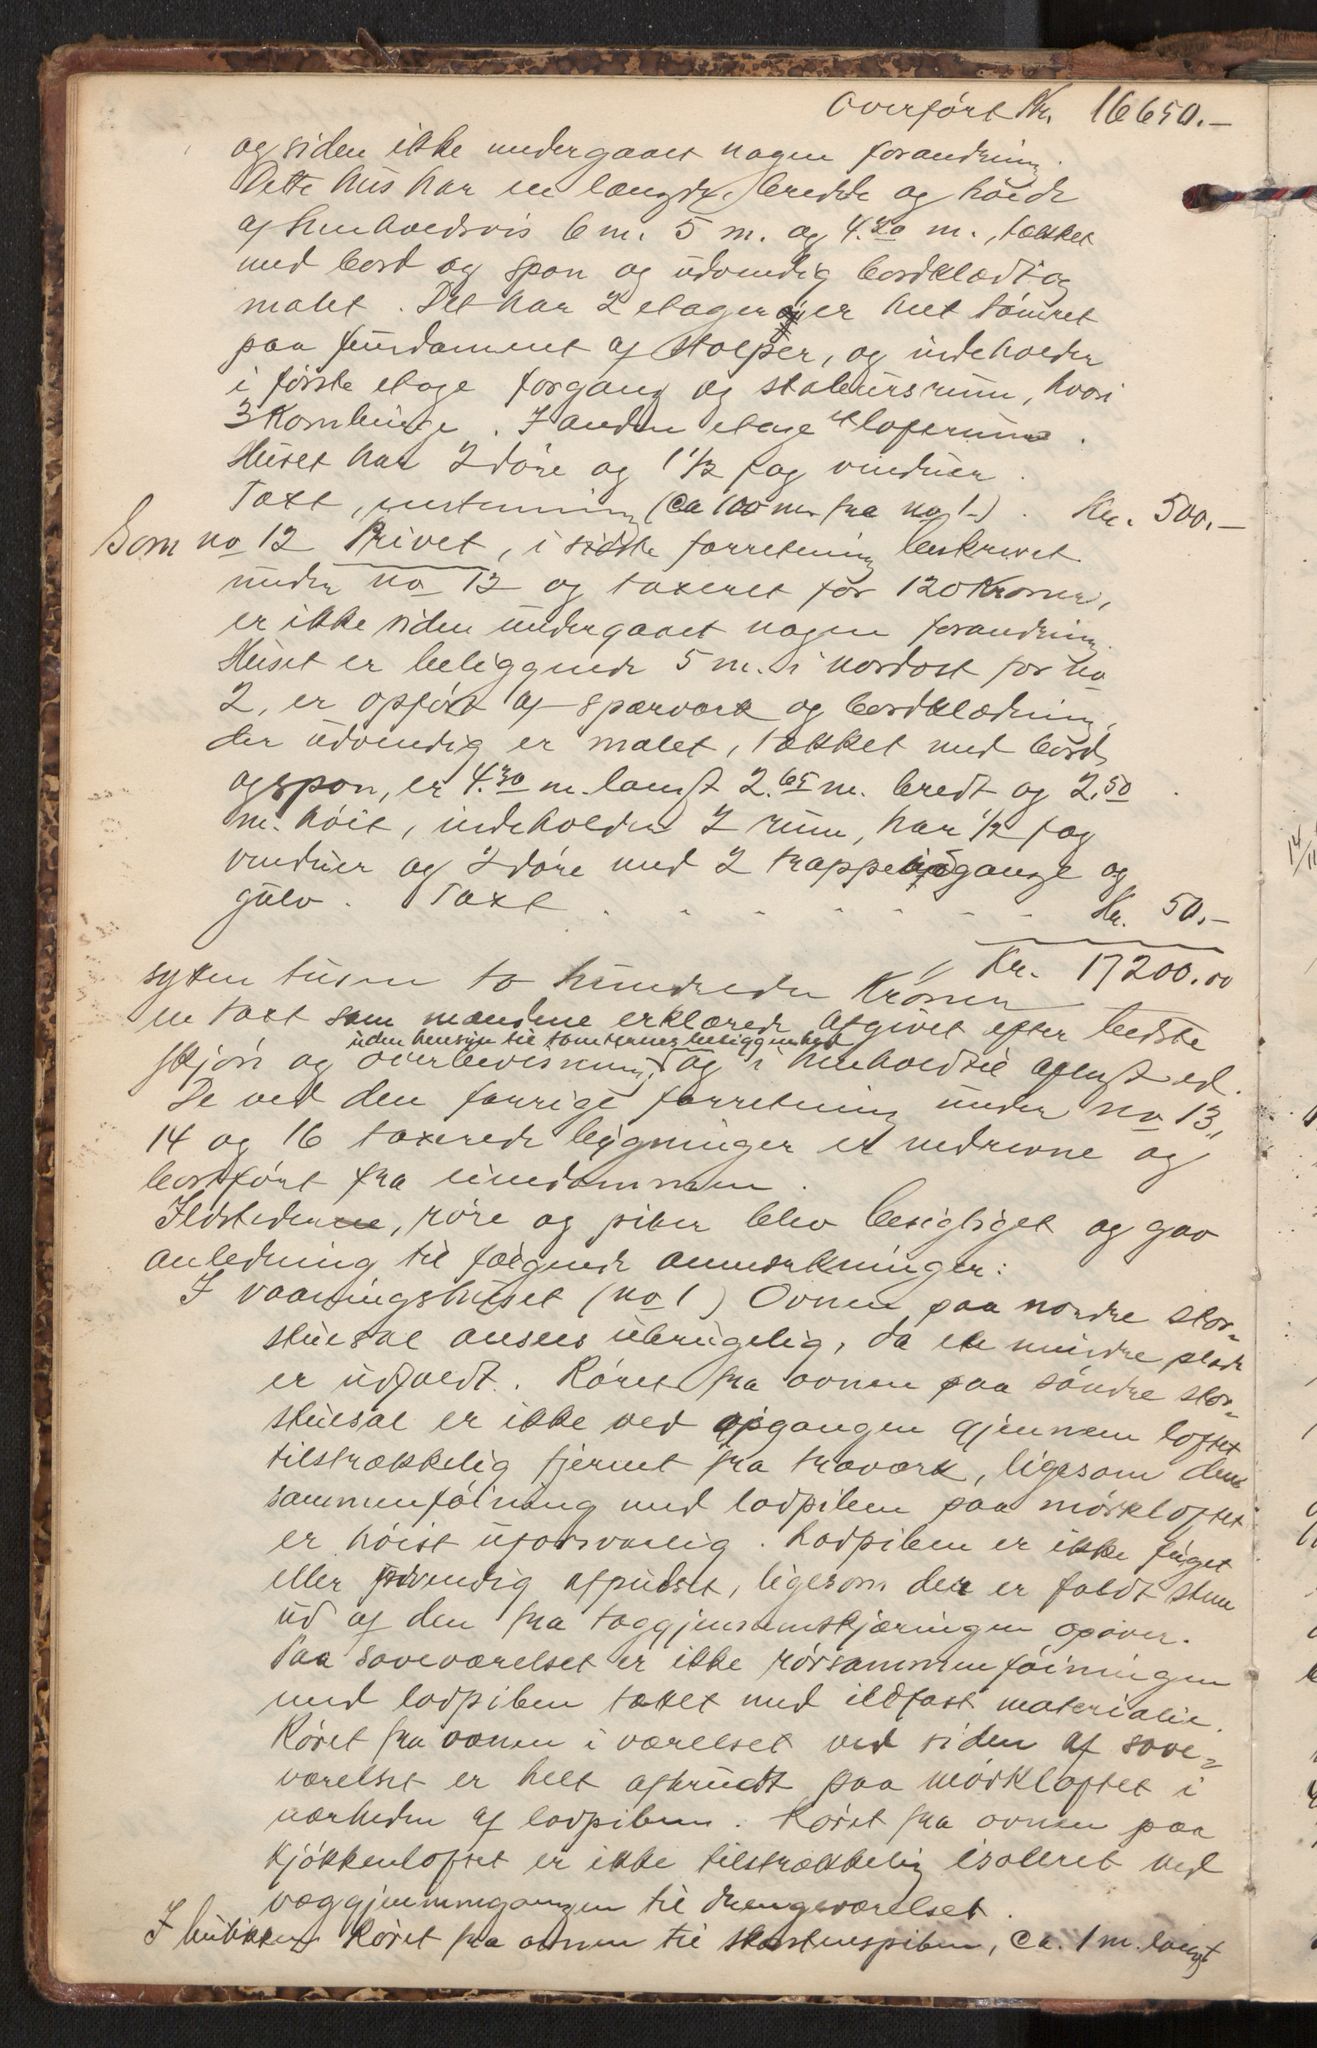 Overført Kr. 16650.-
og siden ikke undergaaet nogen forandring.
Dette hus har en længde, bredde og høide
af henholdsvis 6 m. 5 m. og 4.20 m., tækket
med bord og spon og udvendig bordklædt og
malet. Det har 2 etager er helt tømret
paa fundament af stolper, og indeholder
i første etage forgang og stabursrum, hvori
3 Kornbinge. I anden etage loftrum.
Huset har 2 døre og 1 1/2 fag vinduer.
Taxt, (ca 100 m. fra no 1.) . Kr. 500.-
Som no 12 Privet, i sidste forretning beskrevet
under no 12 og taxeret for 120 Kroner,
er ikke siden undergaaet nogen forandring.
Huset er beliggende 5 m. i nordost for no
2, er opført af spærværk og bordklædning,
der udvendig er malet, tækket med bord
og spon, er 4.30 m. langt 2.65 m. bredt og 2.50
m. høit, indeholder 2 rum, har 1/2 fag
vinduer og 2 døre med 2 trappe gange og
gulv. Taxt . . . . . . . Kr. 50.-
Kr. 17200.00
sytten tusen to hundrede Kroner
en taxt som mændene erklærede afgivet efter bedste
uden hensyn til tomternes beliggenhed
skjøn og overbevisning, og i henhold til aflagt ed.
De ved den forrige forretning under no 13,
14 og 16 taxerede bygninger er nedrevne og
bortført fra eiendommen.
Ildstederne, røre og piber blev besigtiget og gav
anledning til følgende anmerkninger:
I vaaningshuset (no 1) Ovnen paa nordre stor-
stuesal ansees ubrugelig, da en mindre plade
er udfaldt. Røret fra ovnen paa søndre stor-
stuesal er ikke ved opgangen gjennem loftet
tilstrækkelig fjernet fra træværk, ligesom dens
sammenføining med lodpiben paa mørkloftet
er høist uforsvarlig. Lodpiben er ikke fuget
eller udvendig afpudset, ligesom der er faldt stene
ud af den fra taggjennemskjæringen opover.
Paa soveværelset er ikke rørsammenføiningen
med lodpiben tættet med ildfast materialie.
Røret fra ovnen i værelset ved siden af sove-
værelset er helt afbrudt paa mørkloftet i
nærheden af lodpiben. Røret fra ovnen paa
kjøkkenloftet er ikke tilstrækkelig isoleret ved
væggjennemgangen til drengeværelset.
I butikken Røret fra ovnen til skorstenspiben, ca. 1 m. langt